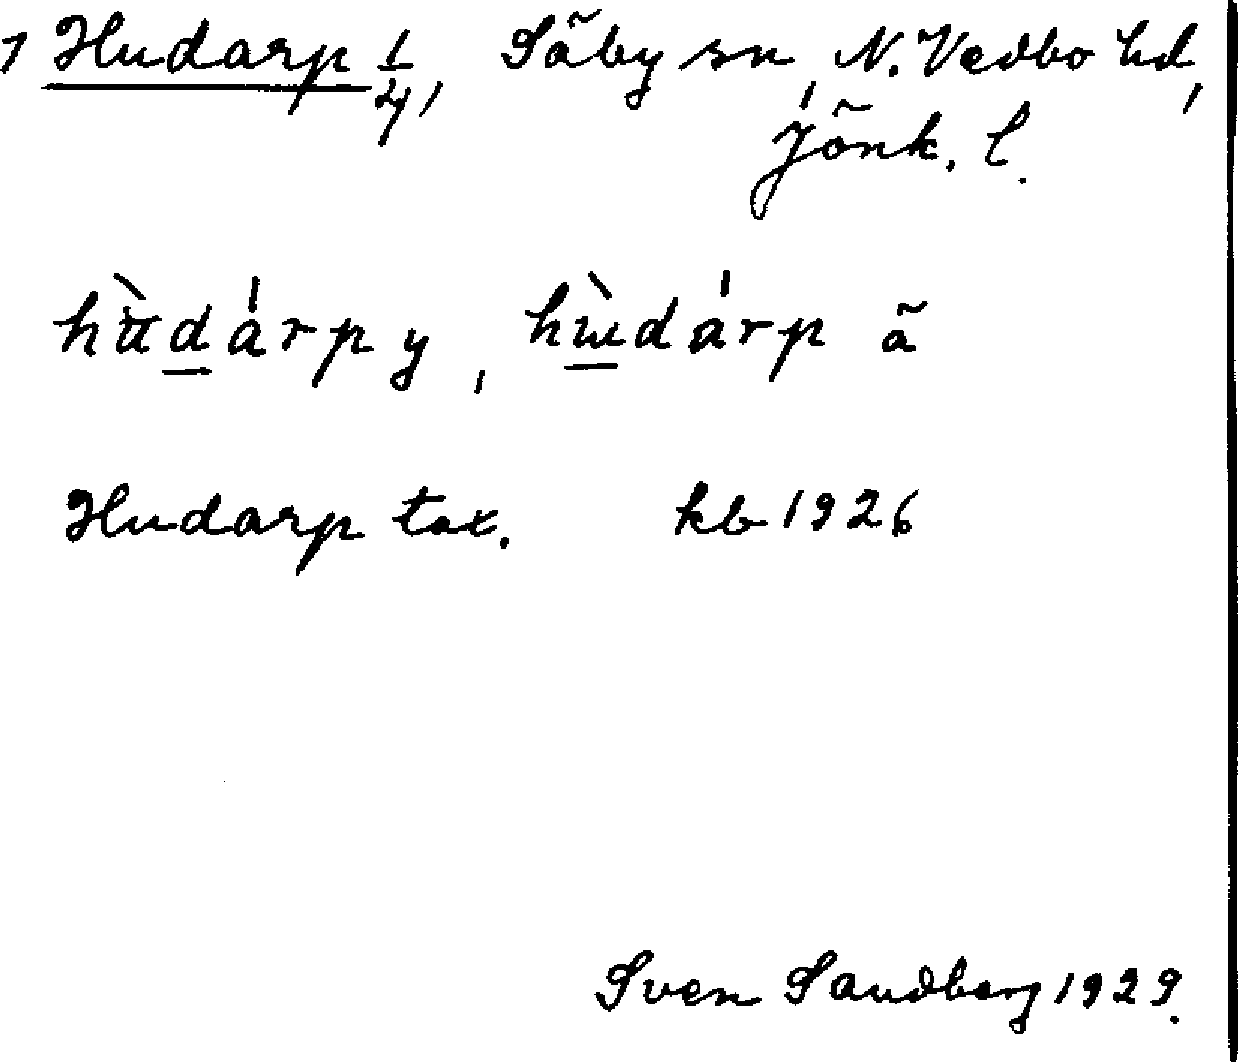 1 Hudarp 1/4, Säby sn, N. Vedbo hd,
Jönk. l.
hùdárp y, hɯ̀dárp ã
Hudarp tax. kb 1926
Sven Sandberg 1929.